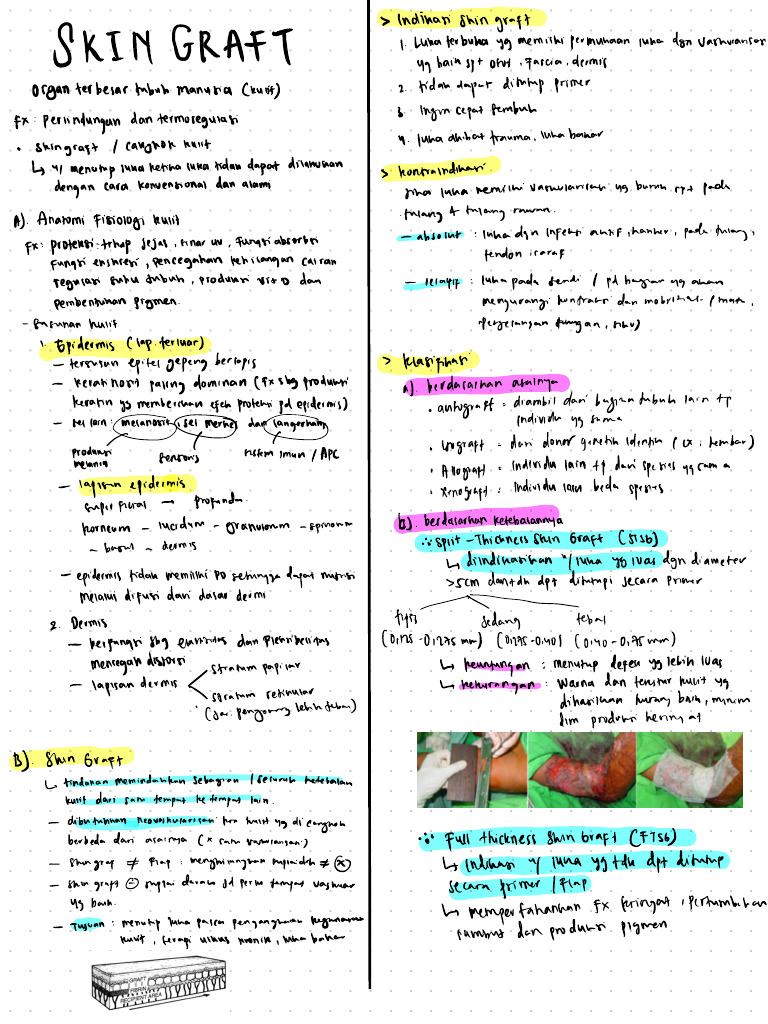 SKIN GRAFT
Organ terbesar tubuh manusia (kulit)
Fx: Perlindungan dan termoregulasi
• Skin graft / cangkok kulit
↳ u/ menutup luka ketika luka tidak dapat dilakukan
dengan cara konvensional dan alami
A). Anatomi Fisiologi kulit
Fx: proteksi trhdp , sinar uv, fungsi absorbsi
fungsi ekskresi, pencegahan kehilangan cairan
regulasi suhu tubuh, produksi vit D dan
pembentukan pigmen.
- Susunan kulit
1. Epidermis (lap. terluar)
- tersusun epitel gepeng berlapis
- keratinosit paling dominan (fx sbg produksi
keratin yg memberikan efek proteksi pd epidermis)
- sel lain: melanosit, sel merkel dan langerhans
produksi melanin
sensoris
sistem imun / APC
- lapisan epidermis
superficial → profunda
korneum - lucidum - granulosum - spinosum
- basal - dermis
- epidermis tidak memiliki PD sehingga dapat nutrisi
melalui difusi dari dasar dermi
2. Dermis
- berfungsi sbg elastisitas dan fleksibelitas
mencegah distorsi
- lapisan dermis
stratum papilar
stratum retikular
(jar. penyambung lebih tebal)
B). Skin Graft
↳ tindakan memindahkan sebagian / seluruh ketebalan
kulit dari satu tempat ke tempat lain.
- dibutuhkan neovaskularisasi krn kulit yg di cangkok
berbeda dari asalnya
- Skin graf ≠ Flap :
- Skin graft ⊖ suplai darah jd perlu tempat vaskular
yg baik.
- Tujuan : menutup luka pasca pengangkatan keganasan
kulit, terapi ulkus kronik, luka bakar
GRAFT
FIBRIN
RECIPIENT AREA
> Indikasi skin graft
1. Luka terbuka yg memiliki permukaan luka dgn vaskularisasi
yg baik spt otot, fascia, dermis
2. tidak dapat ditutup primer
3. Ingin cepat sembuh
4. luka akibat trauma, luka bakar
> kontraindikasi
Jika luka memiliki vaskularisasi yg buruk spt pada
tulang & tulang rawan.
- absolut : luka dgn infeksi aktif, kanker, pada tulang,
tendon, saraf
- relatif : luka pada sendi / pd bagian yg akan
mengurangi kontraksi dan mobilitas (mata,
pergelangan tangan, siku)
> klasifikasi
a). berdasarkan asalnya
• autograft = diambil dari bagian tubuh lain tp
individu yg sama
• Isograft = dari donor genetik identik (ex: kembar)
• Allograft = Individu lain tp dari spesies yg sama
• Xenograft = Individu lain beda spesies.
b). berdasarkan ketebalannya
∴ Split-Thickness Skin Graft (STSG)
↳ diindikasikan u/ luka yg luas dgn diameter
>5cm dan tdk dpt ditutupi secara primer
tipis
sedang
tebal
(0,125 - 0,275 mm) (0,275 - 0,40) (0,40 - 0,75 mm)
↳ keuntungan : menutup defek yg lebih luas
↳ kekurangan : Warna dan tekstur kulit yg
dihasilkan kurang baik, minim
dlm produksi keringat
∵ Full thickness Skin Graft (FTSG)
↳ Indikasi u/ luka yg tdk dpt ditutup
secara primer / flap
↳ mempertahankan fx keringat, pertumbuhan
rambut dan produksi pigmen